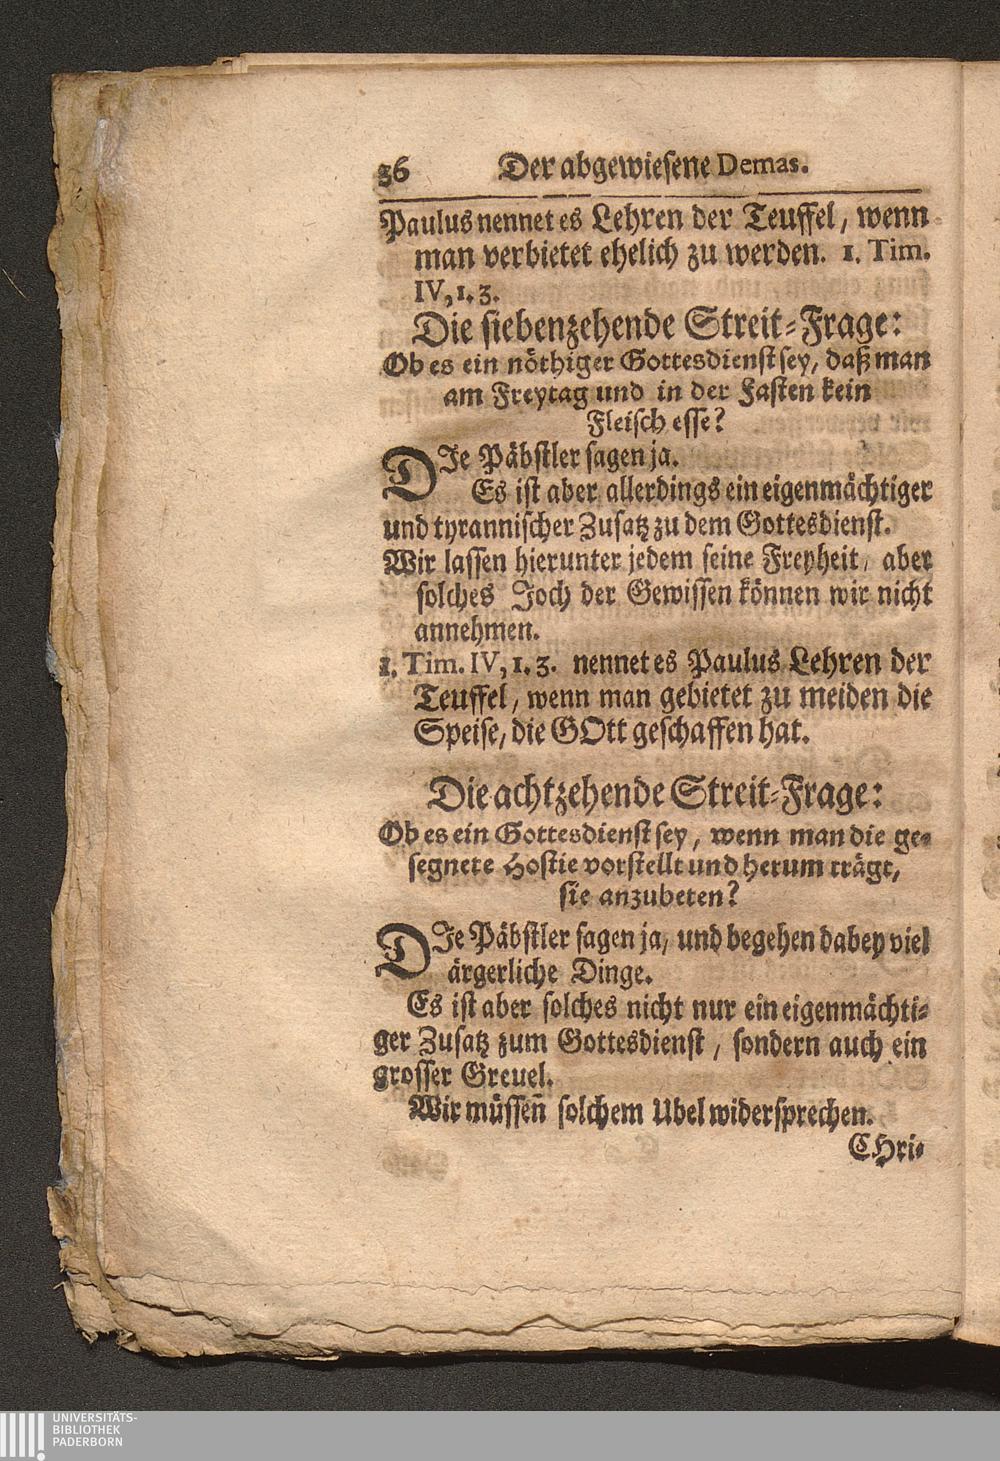 36 Der abgewiesene Demas.
Paulus nennet es Lehren der Teuffel, wenn
man verbietet ehelich zu werden. 1. Tim.
IV, 1. 3.
Die siebenzehende Streit-Frage:
Ob es ein nöthiger Gottesdienst sey, daß man
am Freytag und in der Fasten kein
Fleisch esse?
DIe Päbstler sagen ja.
Es ist aber allerdings ein eigenmächtiger
und tyrannischer Zusatz zu dem Gottesdienst.
Wir lassen hierunter jedem seine Freyheit, aber
solches Joch der Gewissen können wir nicht
annehmen.
1. Tim. IV, 1. 3. nennet es Paulus Lehren der
Teuffel, wenn man gebietet zu meiden die
Speise, die GOtt geschaffen hat.
Die achtzehende Streit-Frage:
Ob es ein Gottesdienst sey, wenn man die ge-
segnete Hostie vorstellt und herum trägt,
sie anzubeten?
DIe Päbstler sagen ja, und begehen dabey viel
ärgerliche Dinge.
Es ist aber solches nicht nur ein eigenmächti-
ger Zusatz zum Gottesdienst, sondern auch ein
grosser Greuel.
Wir müssen̄ solchem Ubel widersprechen.
CHri-
UNIVERSITÄTS-
BIBLIOTHEK
PADERBORN